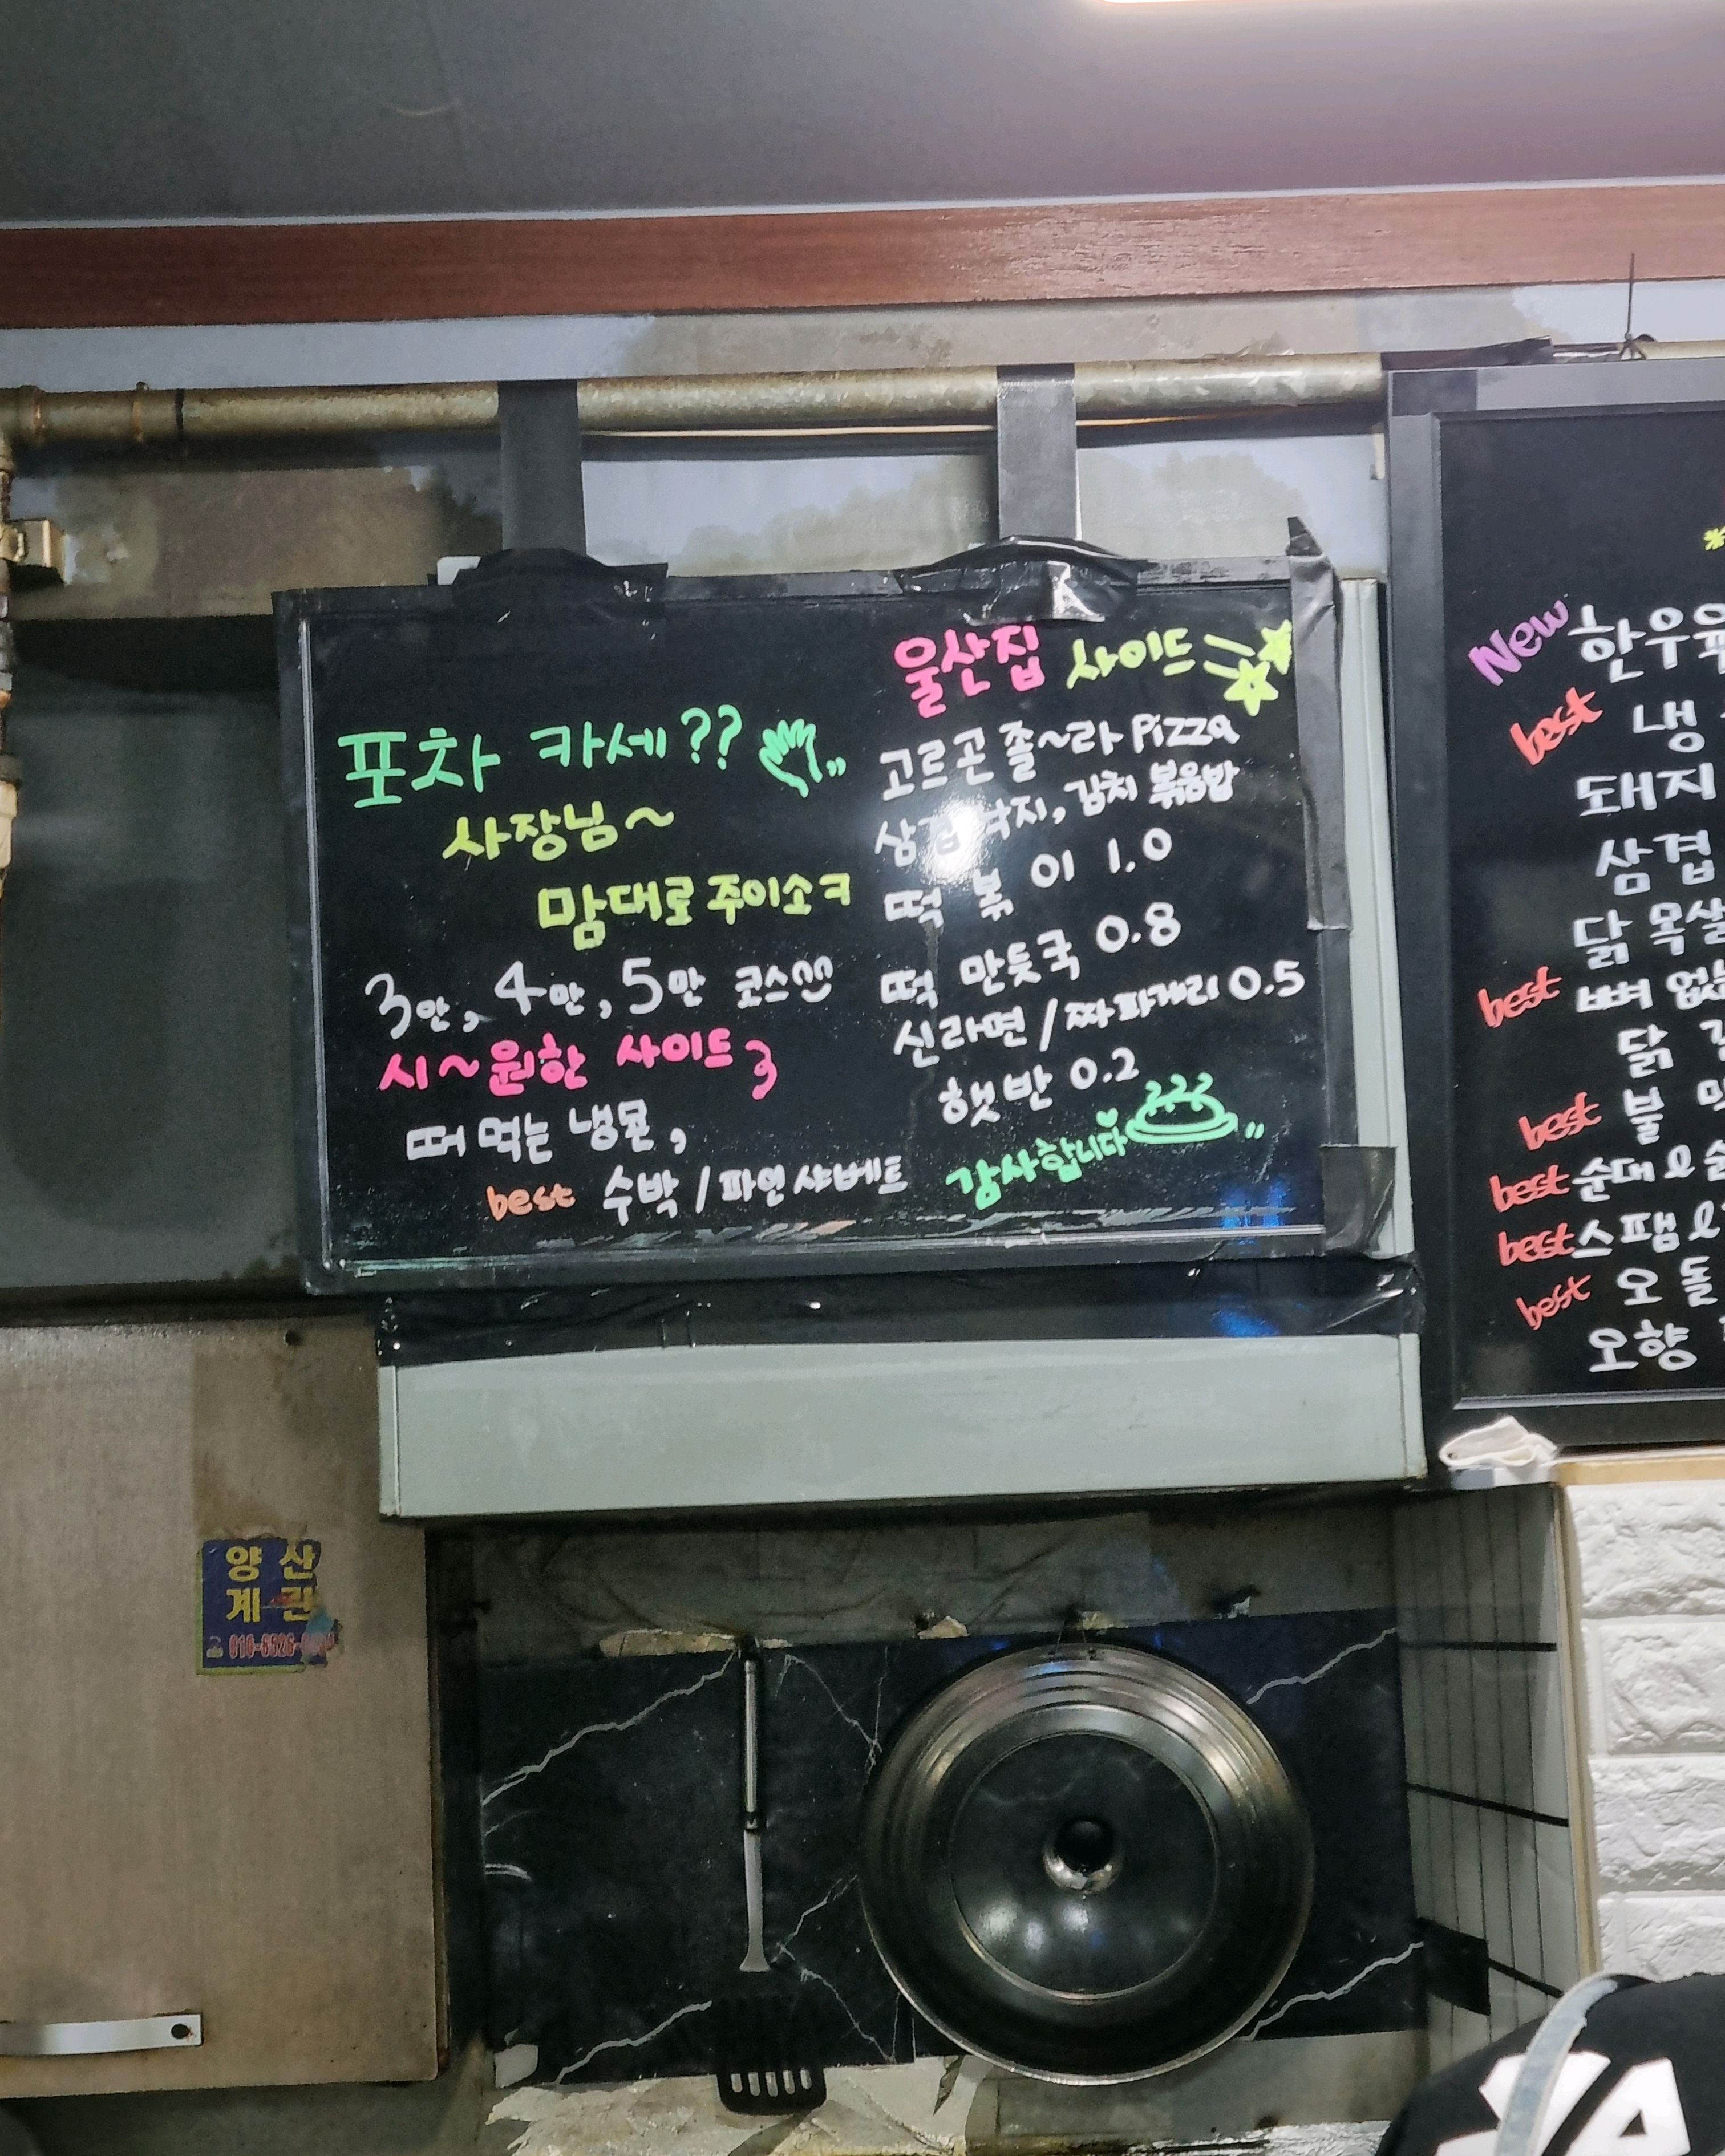 포차 카세??
사장님~
맘대로 주이소ㅋ
3만, 4만, 5만 코스
시~원한 사이드3
떠 먹는 냉몬,
best 수박 / 파인 샤베트
울산집 사이드
고르곤 졸~라 Pizza
삼겹 낙지, 김치 볶음밥
떡 볶 이 1.0
떡 만듯국 0.8
신라면 / 짜파게리 0.5
햇반 0.2
감사합니다
New 한우
best 냉
돼지
삼겹
닭 목살
best 뼈 없는
닭
best 불
best 순대 &
best 스팸 &
best 오 돌
오향
양 산
계 란
010-8526-